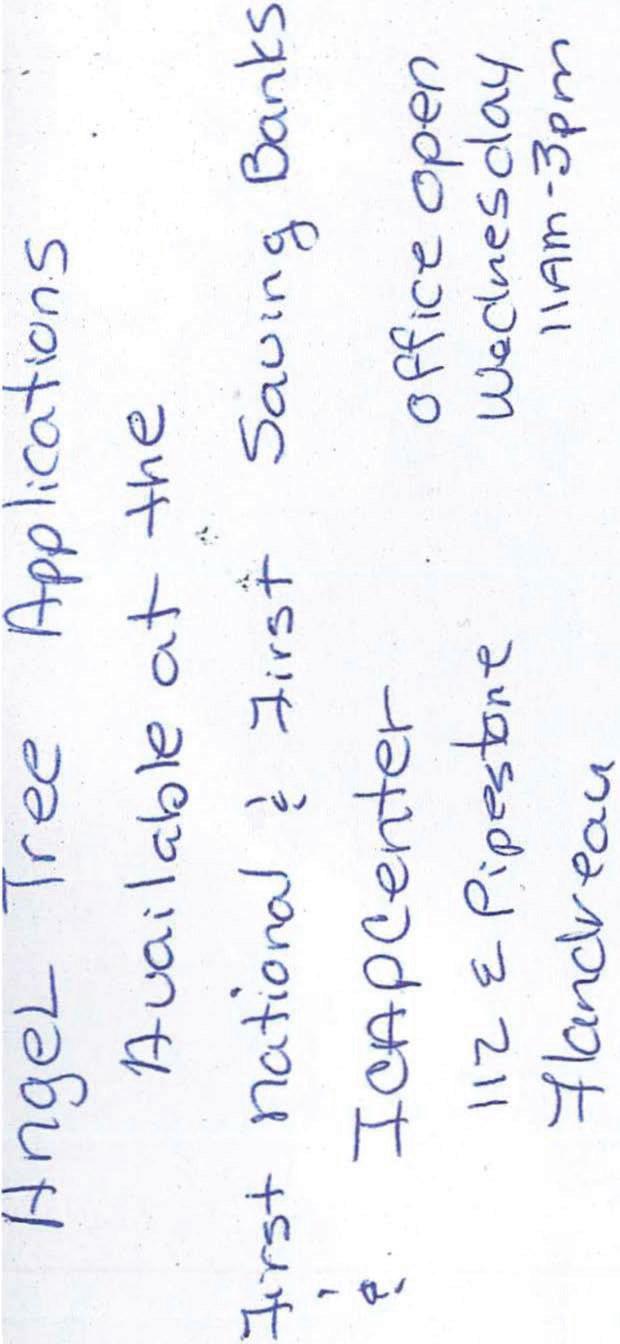 Angel Tree Applications
Available at the
First national & First Saving Banks
& ICAP center
office open
112 E Pipestone
Wednesday
Flandreau
11AM-3pm